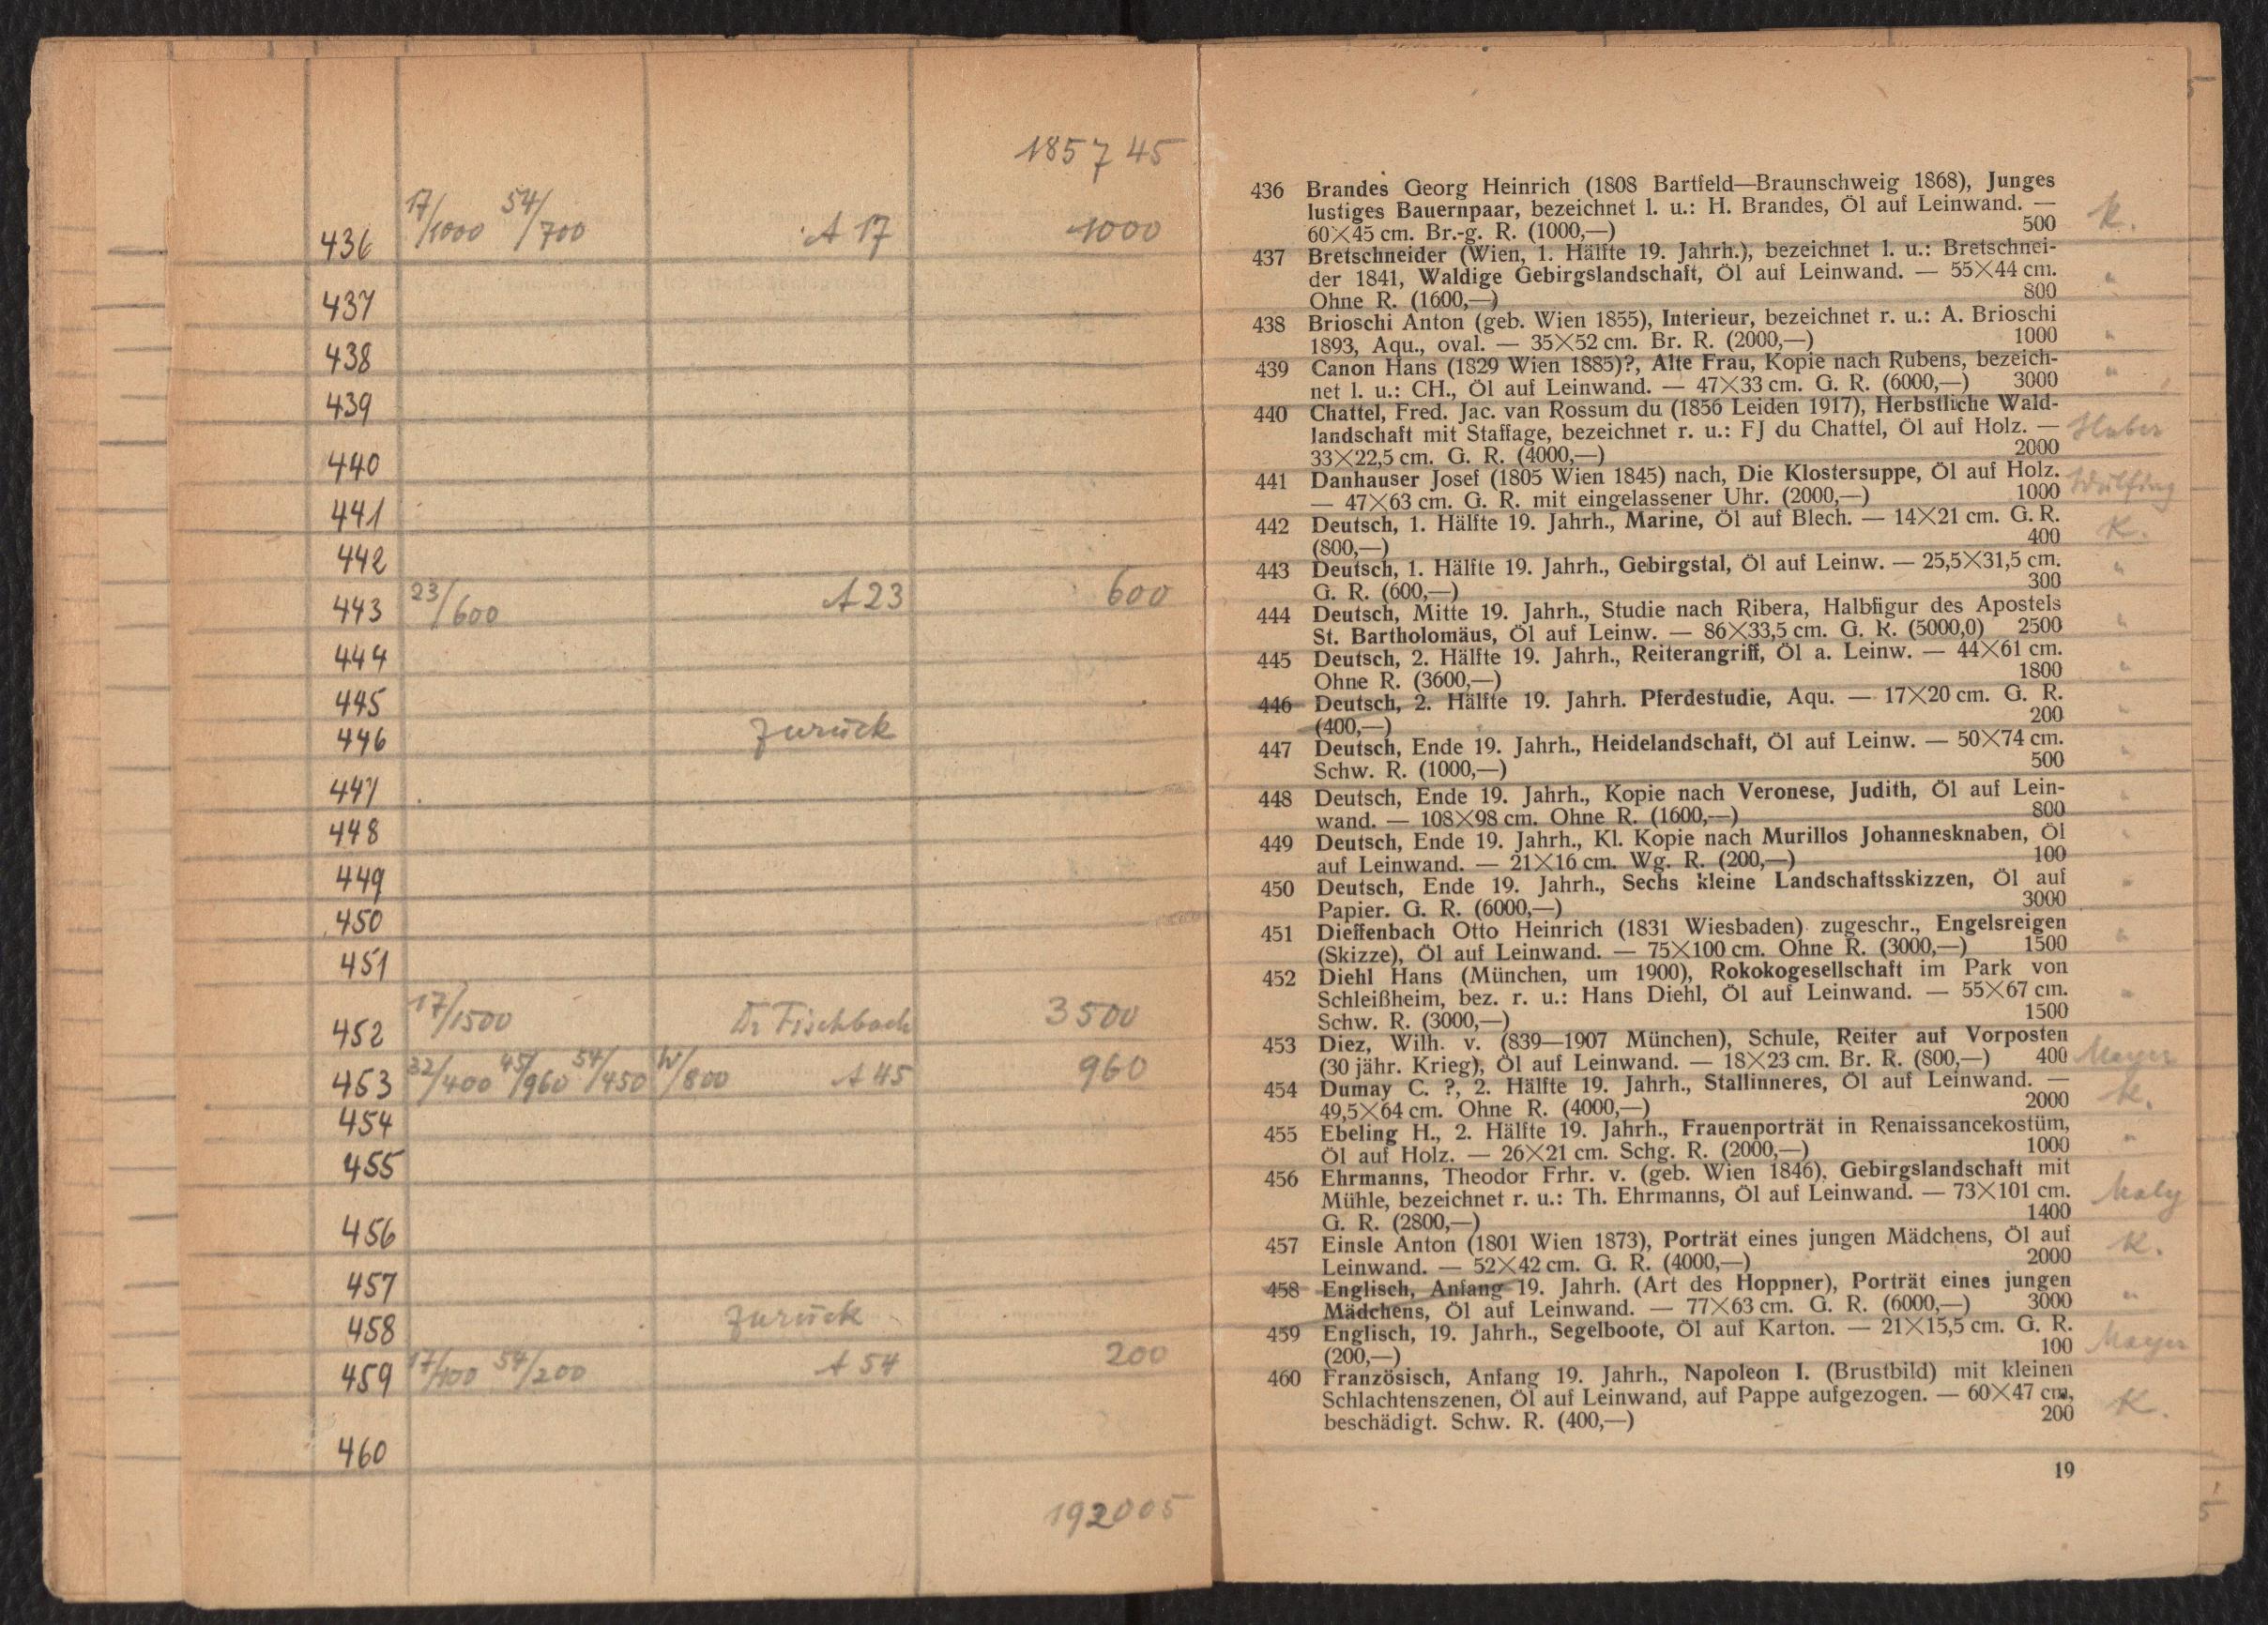 185745
436 17/1000 54/700 A 17 1000
437
438
439
440
441
442
443 23/600 A 23 600
444
445
446 zurück
447
448
449
450
451
452 17/1500 Dr Fischbach 3500
453 32/400 45/960 54/450 W/800 A 45 960
454
455
456
457
458 zurück
459 17/100 54/200 A 54 200
460
192005
436 Brandes Georg Heinrich (1808 Bartfeld—Braunschweig 1868), Junges
lustiges Bauernpaar, bezeichnet l. u.: H. Brandes, Öl auf Leinwand. —
60×45 cm. Br.-g. R. (1000,—) 500 K.
437 Bretschneider (Wien, 1. Hälfte 19. Jahrh.), bezeichnet l. u.: Bretschnei-
der 1841, Waldige Gebirgslandschaft, Öl auf Leinwand. — 55×44 cm. "
Ohne R. (1600,—) 800
438 Brioschi Anton (geb. Wien 1855), Interieur, bezeichnet r. u.: A. Brioschi
1893, Aqu., oval. — 35×52 cm. Br. R. (2000,—) 1000 "
439 Canon Hans (1829 Wien 1885)?, Alte Frau, Kopie nach Rubens, bezeich-
net l. u.: CH., Öl auf Leinwand. — 47×33 cm. G. R. (6000,—) 3000 "
440 Chattel, Fred. Jac. van Rossum du (1856 Leiden 1917), Herbstliche Wald-
landschaft mit Staffage, bezeichnet r. u.: FJ du Chattel, Öl auf Holz. — Huber
33×22,5 cm. G. R. (4000,—) 2000
441 Danhauser Josef (1805 Wien 1845) nach, Die Klostersuppe, Öl auf Holz. Wülfing
— 47×63 cm. G. R. mit eingelassener Uhr. (2000,—) 1000
442 Deutsch, 1. Hälfte 19. Jahrh., Marine, Öl auf Blech. — 14×21 cm. G. R.
(800,—) 400 K.
443 Deutsch, 1. Hälfte 19. Jahrh., Gebirgstal, Öl auf Leinw. — 25,5×31,5 cm. "
G. R. (600,—) 300
444 Deutsch, Mitte 19. Jahrh., Studie nach Ribera, Halbfigur des Apostels
St. Bartholomäus, Öl auf Leinw. — 86×33,5 cm. G. R. (5000,0) 2500 "
445 Deutsch, 2. Hälfte 19. Jahrh., Reiterangriff, Öl a. Leinw. — 44×61 cm.
Ohne R. (3600,—) 1800 "
446 Deutsch, 2. Hälfte 19. Jahrh. Pferdestudie, Aqu. — 17×20 cm. G. R.
(400,—) 200 "
447 Deutsch, Ende 19. Jahrh., Heidelandschaft, Öl auf Leinw. — 50×74 cm.
Schw. R. (1000,—) 500 "
448 Deutsch, Ende 19. Jahrh., Kopie nach Veronese, Judith, Öl auf Lein-
wand. — 108×98 cm. Ohne R. (1600,—) 800 "
449 Deutsch, Ende 19. Jahrh., Kl. Kopie nach Murillos Johannesknaben, Öl "
auf Leinwand. — 21×16 cm. Wg. R. (200,—) 100
450 Deutsch, Ende 19. Jahrh., Sechs kleine Landschaftsskizzen, Öl auf "
Papier. G. R. (6000,—) 3000
451 Dieffenbach Otto Heinrich (1831 Wiesbaden) zugeschr., Engelsreigen "
(Skizze), Öl auf Leinwand. — 75×100 cm. Ohne R. (3000,—) 1500
452 Diehl Hans (München, um 1900), Rokokogesellschaft im Park von
Schleißheim, bez. r. u.: Hans Diehl, Öl auf Leinwand. — 55×67 cm. "
Schw. R. (3000,—) 1500
453 Diez, Wilh. v. (839—1907 München), Schule, Reiter auf Vorposten
(30 jähr. Krieg), Öl auf Leinwand. — 18×23 cm. Br. R. (800,—) 400 Mayer
454 Dumay C. ?, 2. Hälfte 19. Jahrh., Stallinneres, Öl auf Leinwand. —
49,5×64 cm. Ohne R. (4000,—) 2000 K.
455 Ebeling H., 2. Hälfte 19. Jahrh., Frauenporträt in Renaissancekostüm,
Öl auf Holz. — 26×21 cm. Schg. R. (2000,—) 1000 "
456 Ehrmanns, Theodor Frhr. v. (geb. Wien 1846), Gebirgslandschaft mit
Mühle, bezeichnet r. u.: Th. Ehrmanns, Öl auf Leinwand. — 73×101 cm. Maly
G. R. (2800,—) 1400
457 Einsle Anton (1801 Wien 1873), Porträt eines jungen Mädchens, Öl auf K.
Leinwand. — 52×42 cm. G. R. (4000,—) 2000
458 Englisch, Anfang 19. Jahrh. (Art des Hoppner), Porträt eines jungen
Mädchens, Öl auf Leinwand. — 77×63 cm. G. R. (6000,—) 3000 "
459 Englisch, 19. Jahrh., Segelboote, Öl auf Karton. — 21×15,5 cm. G. R.
(200,—) 100 Mayer
460 Französisch, Anfang 19. Jahrh., Napoleon I. (Brustbild) mit kleinen
Schlachtenszenen, Öl auf Leinwand, auf Pappe aufgezogen. — 60×47 cm,
beschädigt. Schw. R. (400,—) 200 K.
19